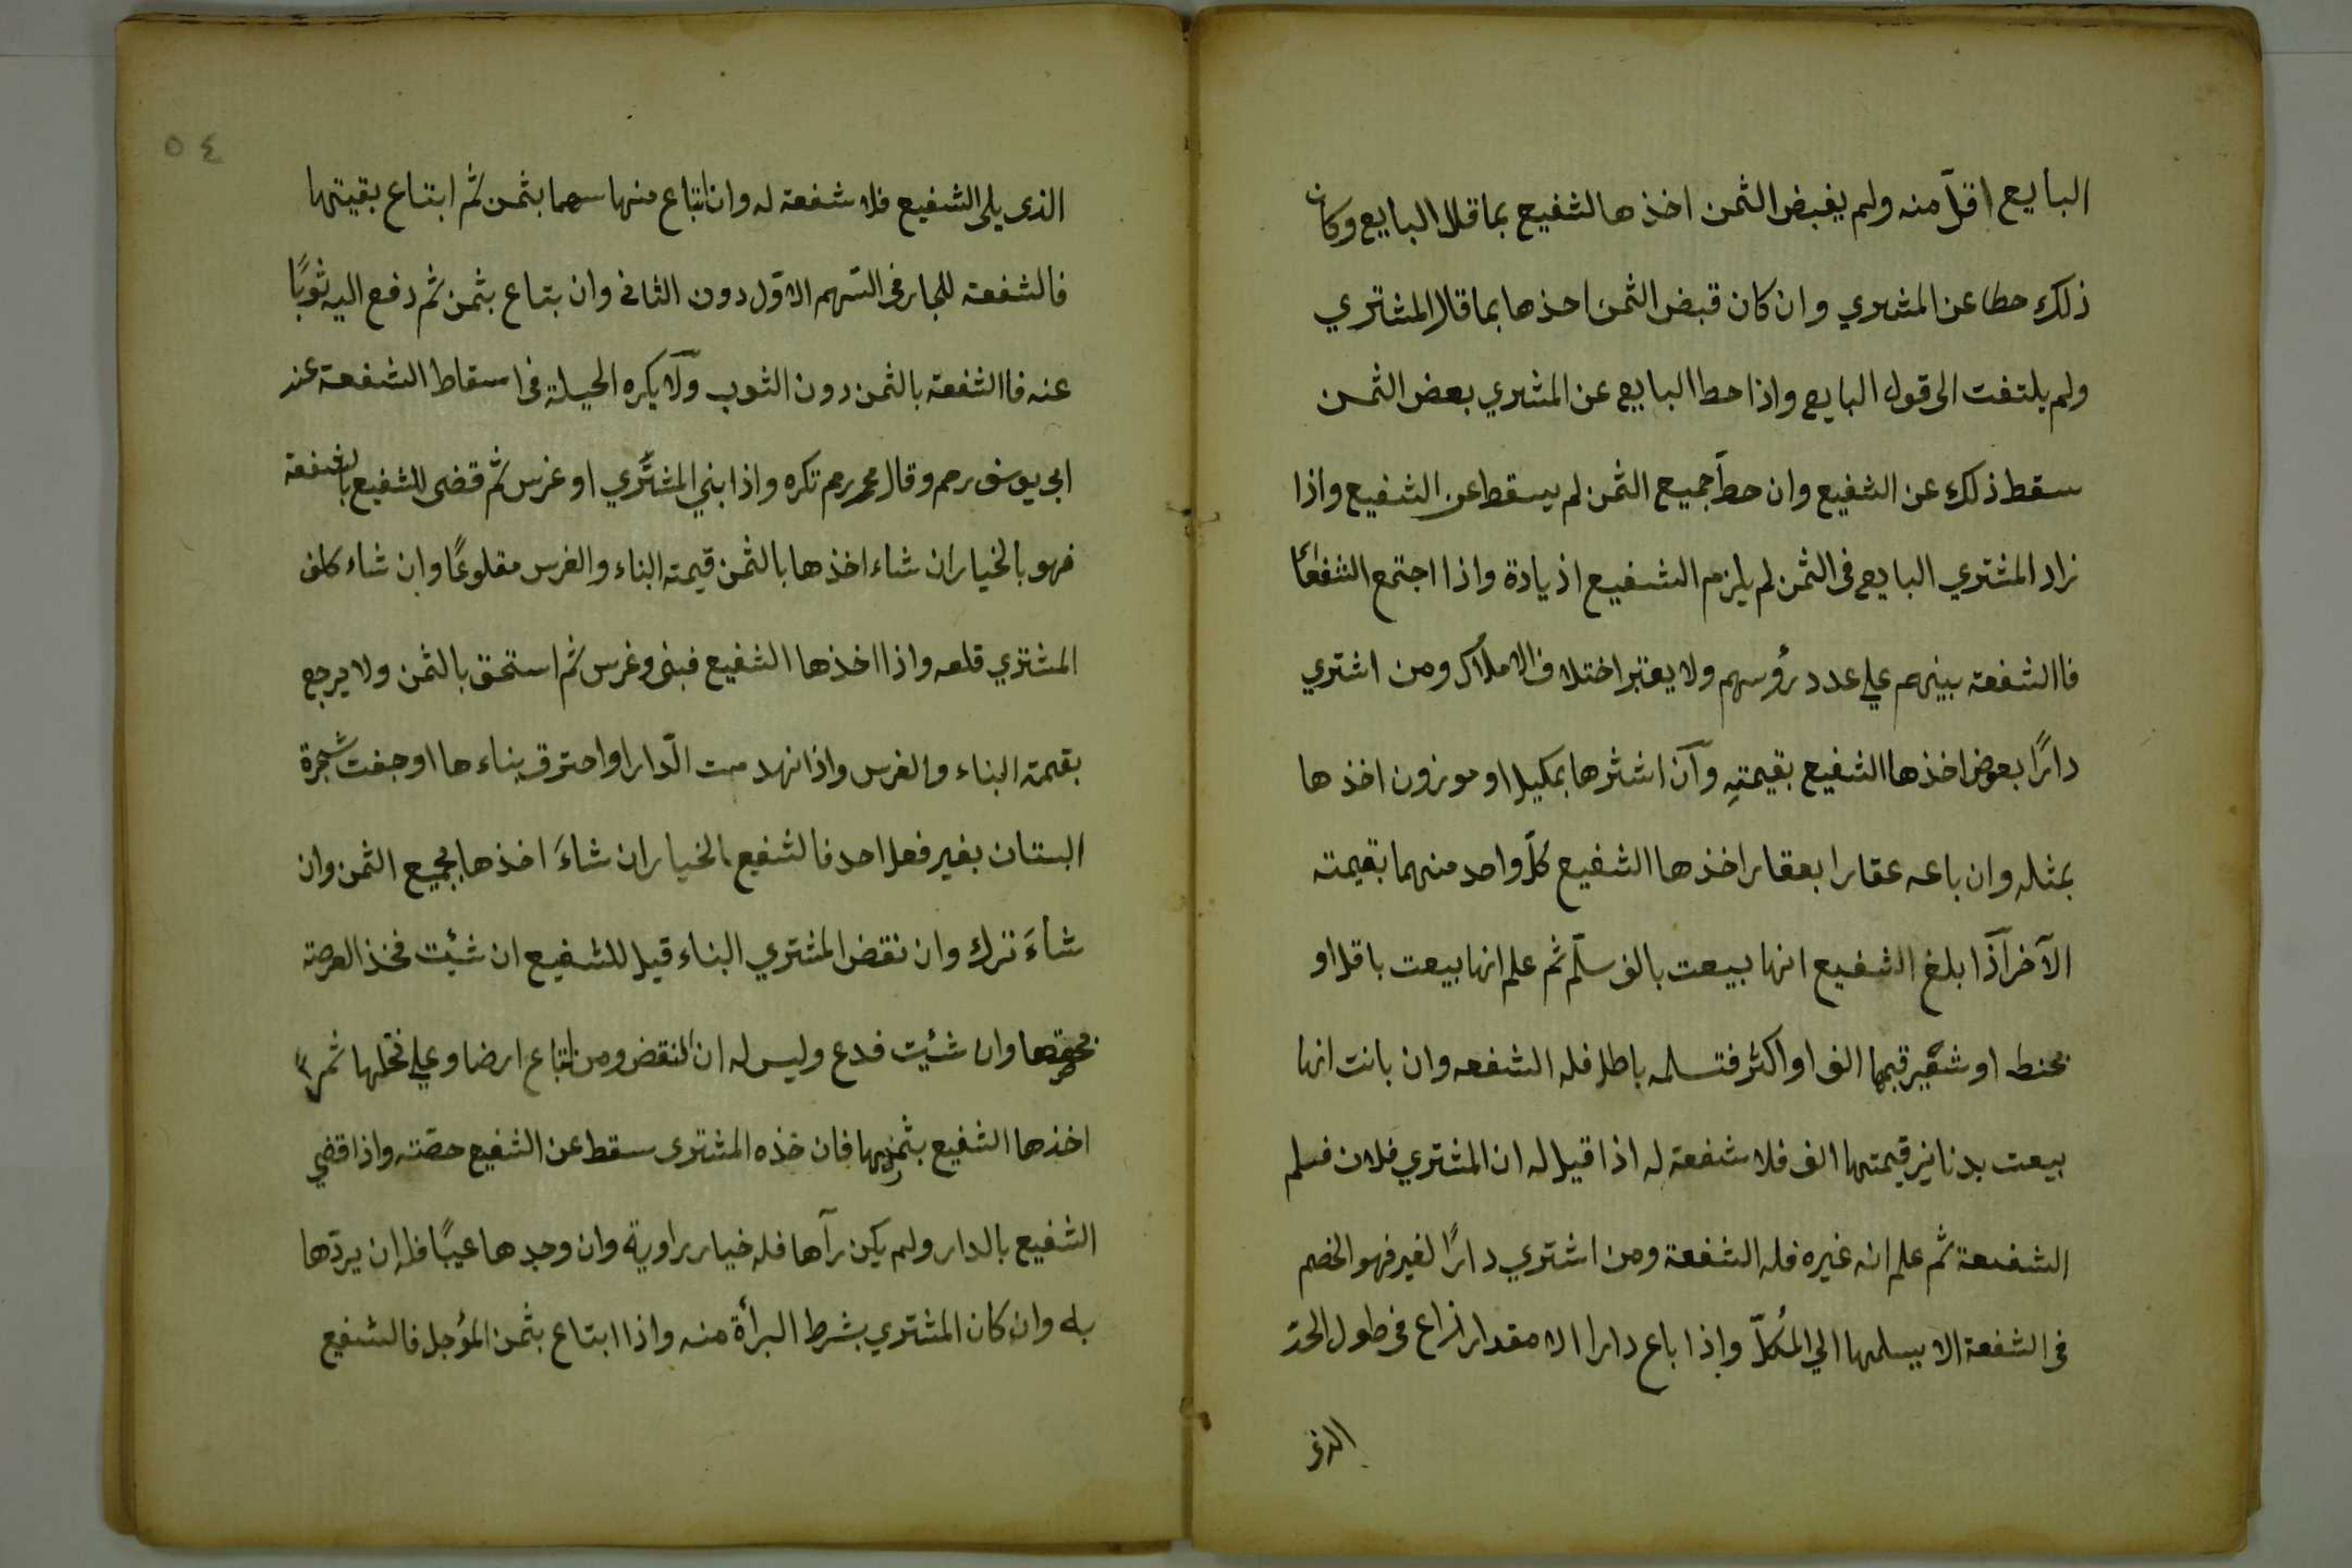 البايع اقلّ منه ولم يقبض الثمن اخذها لشفيع بما قال البايع وكان
ذلك حطا عن المشتري وان كان قبض الثمن اخذها بما قال المشتري
ولم يلتفت الى قول البايع واذا حط البايع عن المشتري بعض الثمن
سقط ذلك عن الشفيع وان حطّ جميع الثمن لم يسقط عن الشفيع واذا
زاد المشتري البايع فى الثمن لم يلزم الشفيع اذيادة واذا اجتمع الشفعاء
فاالشفعة بينهم علي عدد رؤسهم ولا يعتبر اختلاف الاملاك ومن اشتري
دارًا بعوض اخذها الشفيع بقيمتهِ وآن اشترها بمكيل او موزون اخذها
بمثله وان باعه عقارا بعقار اخذها الشفيع كلّ واحد منهما بقيمته
الآخر آذا بلغ الشفيع انها بيعت بالف سلّم ثم علم انها بيعت باقل او
بحنط او شعير قيمتها الف او اكثر فتسلمه باطل فله الشفعه وان بانت انها
بيعت بدنانير قيمتها الف فلا شفعة له اذا قيل له ان المشتري فلان فسلم
الشفعة ثم علم انه غيره فله الشفعة ومن اشتري دارًا لغير فهو الخصم
فى الشفعة الا يسلمها الي المُكلّ واذا باع دارا الا مقدار ذراع فى طول الحدّ
الذي
٥٤
الذى يلى الشفيع فلا شفعة له وان ابتاع منها سهما بثمن ثم ابتاع بقيتها
فالشفعة للجار فى السّهم الاوّل دون الثانى وان بتاع بثمن ثم دفع اليه ثوبًا
عنه فاالشفعة بالثمن دون الثوب ولآ يكره الحيلة فى اسقاط الشفعة عند
ابى يوسف رحم وقال محمد رحم تكره واذا بني المشتَري او غرس ثم قضى للشفيع بالشفعة
فهو بالخيار ان شاء اخذها بالثمن قيمته البناء والغرس مقلوعًا وان شاء كلف
المشتري قلعه واذا اخذها الشفيع فبنى وغرس ثم استحق بالثمن ولا يرجع
بقيمته البناء والغرس واذا نهدمت الدّار او احترق بناءها او جفت شجرة
البستان بغير فعل احد فالشفيع بالخيار ان شاءَ اخذها بجميع الثمن وان
شاءَ ترك وان نقض المشتري البناء قيل للشفيع ان شئت فخذ العرصة
بحصتها وان شئيت فدع وليس له ان النقض ومن ابتاع ارضا وعلي نخلها ثمر
اخذها الشفيع بثمرها فان خذه المشترى سقط عن الشفيع حصّته واذا قضي
الشفيع بالدار ولم يكن رآها فله خيار براوية وان وجدها عيبًا فله ان يردّها
به وان كان المشتري بشرط البرأة منه واذا ابتاع بثمن المؤجل فالشفيع